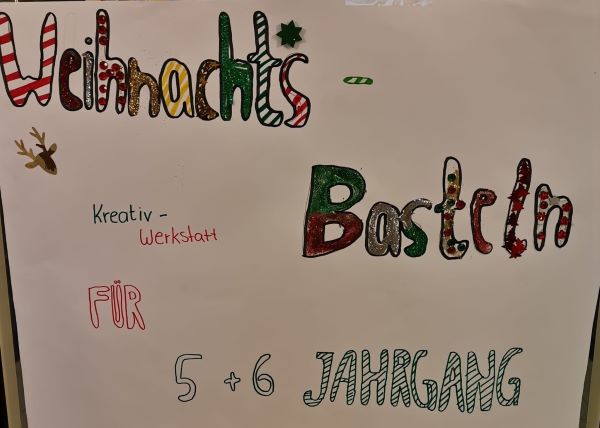 Weihnachts -
Basteln
Kreativ -
Werkstatt
FÜR
5 + 6 JAHRGANG